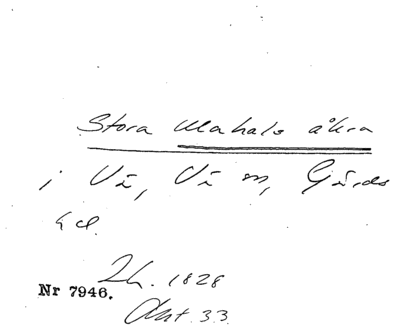 Stora Mahals åkra
i Vä, Vä sn, Gärds
hd.
Lh. 1828
Nr 7946.
Akt. 33